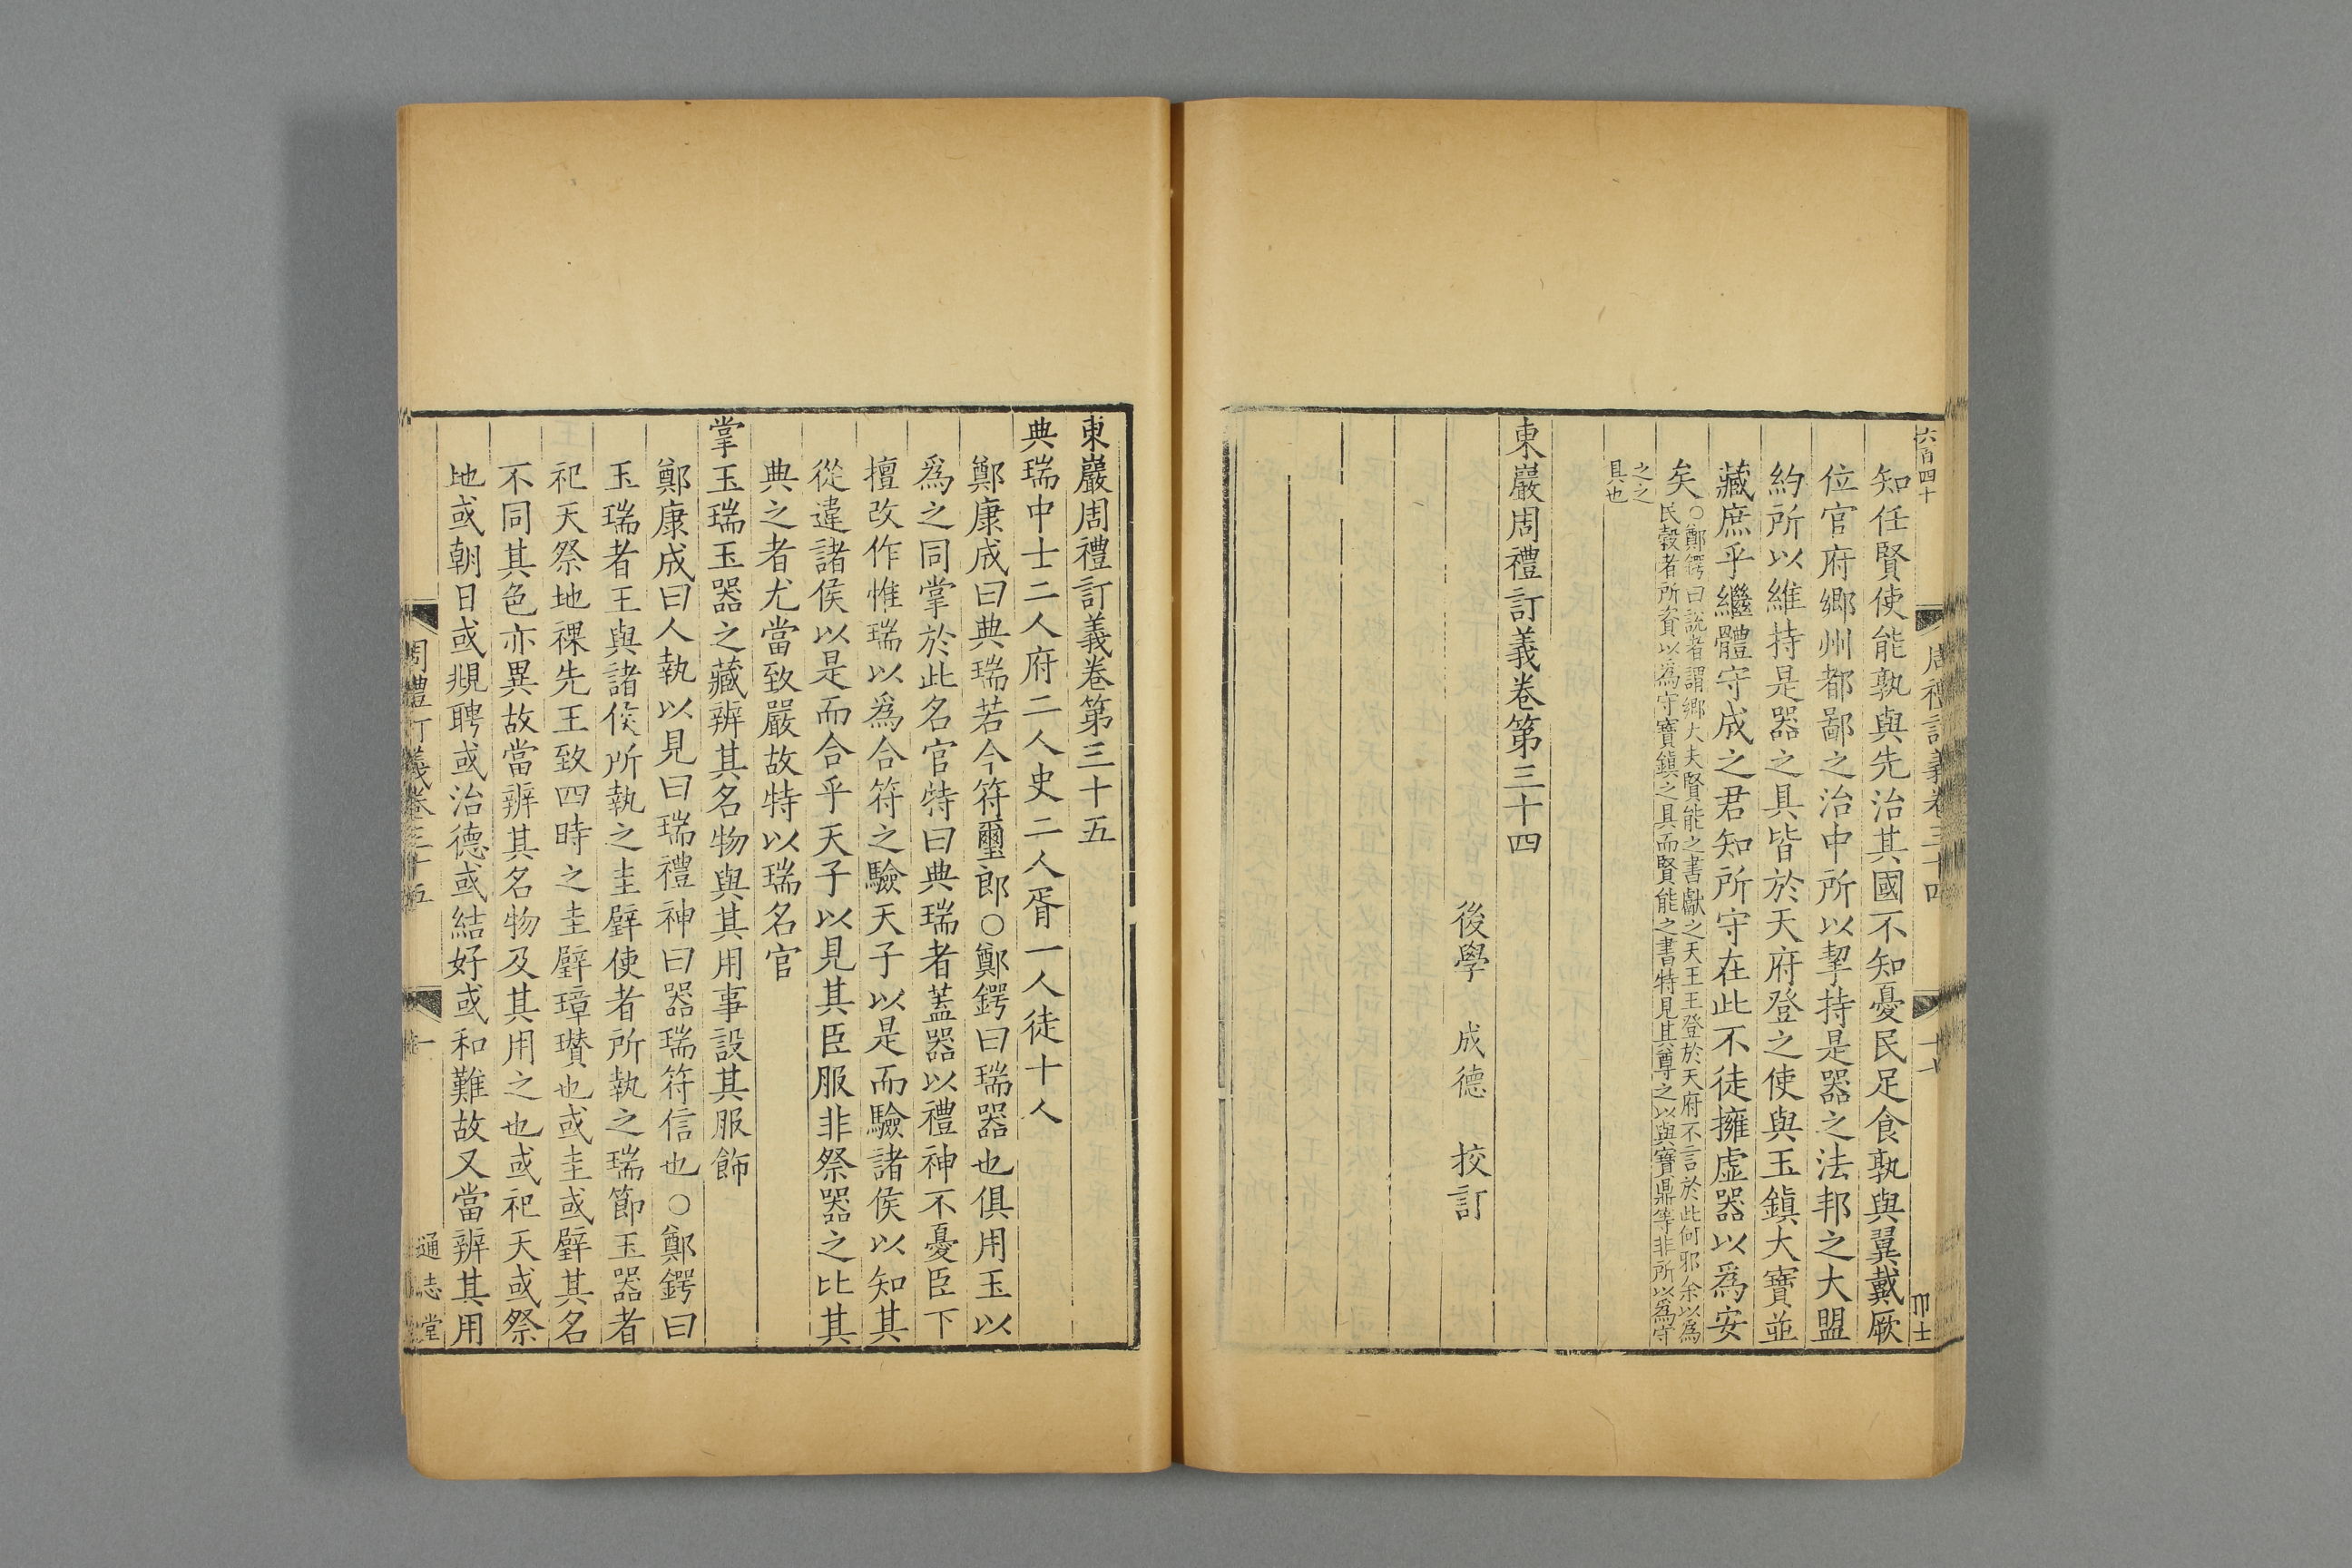 六百四十
周禮訂義卷三十四
十七
知任賢使能孰與先治其國不知憂民足食孰與翼戴厥
位官府鄉州都鄙之治中所以挈持是器之法邦之大盟
約所以維持是器之具皆於天府登之使與玉鎮大寶並
藏庶乎繼體守成之君知所守在此不徒擁虛器以為安
矣○鄭鍔曰說者謂鄉大夫賢能之書獻之天王王登於天府不言於此何邪余以為
民穀者所資以為守寶鎮之具而賢能之書特見其尊之以與寶鼎等非所以為守
之之
具也
東巖周禮訂義卷第三十四
後學 成德 挍訂
東巖周禮訂義卷第三十五
典瑞中士二人府二人史二人胥一人徒十人
鄭康成曰典瑞若今符璽郎○鄭鍔曰瑞器也俱用玉以
爲之同掌於此名官特曰典瑞者蓋器以禮神不憂臣下
擅改作惟瑞以爲合符之驗天子以是而驗諸侯以知其
從違諸侯以是而合乎天子以見其臣服非祭器之比其
典之者尤當致嚴故特以瑞名官
掌玉瑞玉器之藏辨其名物與其用事設其服飾
鄭康成曰人執以見曰瑞禮神曰器瑞符信也○鄭鍔曰
玉瑞者王與諸侯所執之圭璧使者所執之瑞節玉器者
祀天祭地祼先王致四時之圭璧璋瓚也或圭或璧其名
不同其色亦異故當辨其名物及其用之也或祀天或祭
地或朝日或覜聘或治德或結好或和難故又當辨其用
周禮訂義卷三十五
一
通志堂